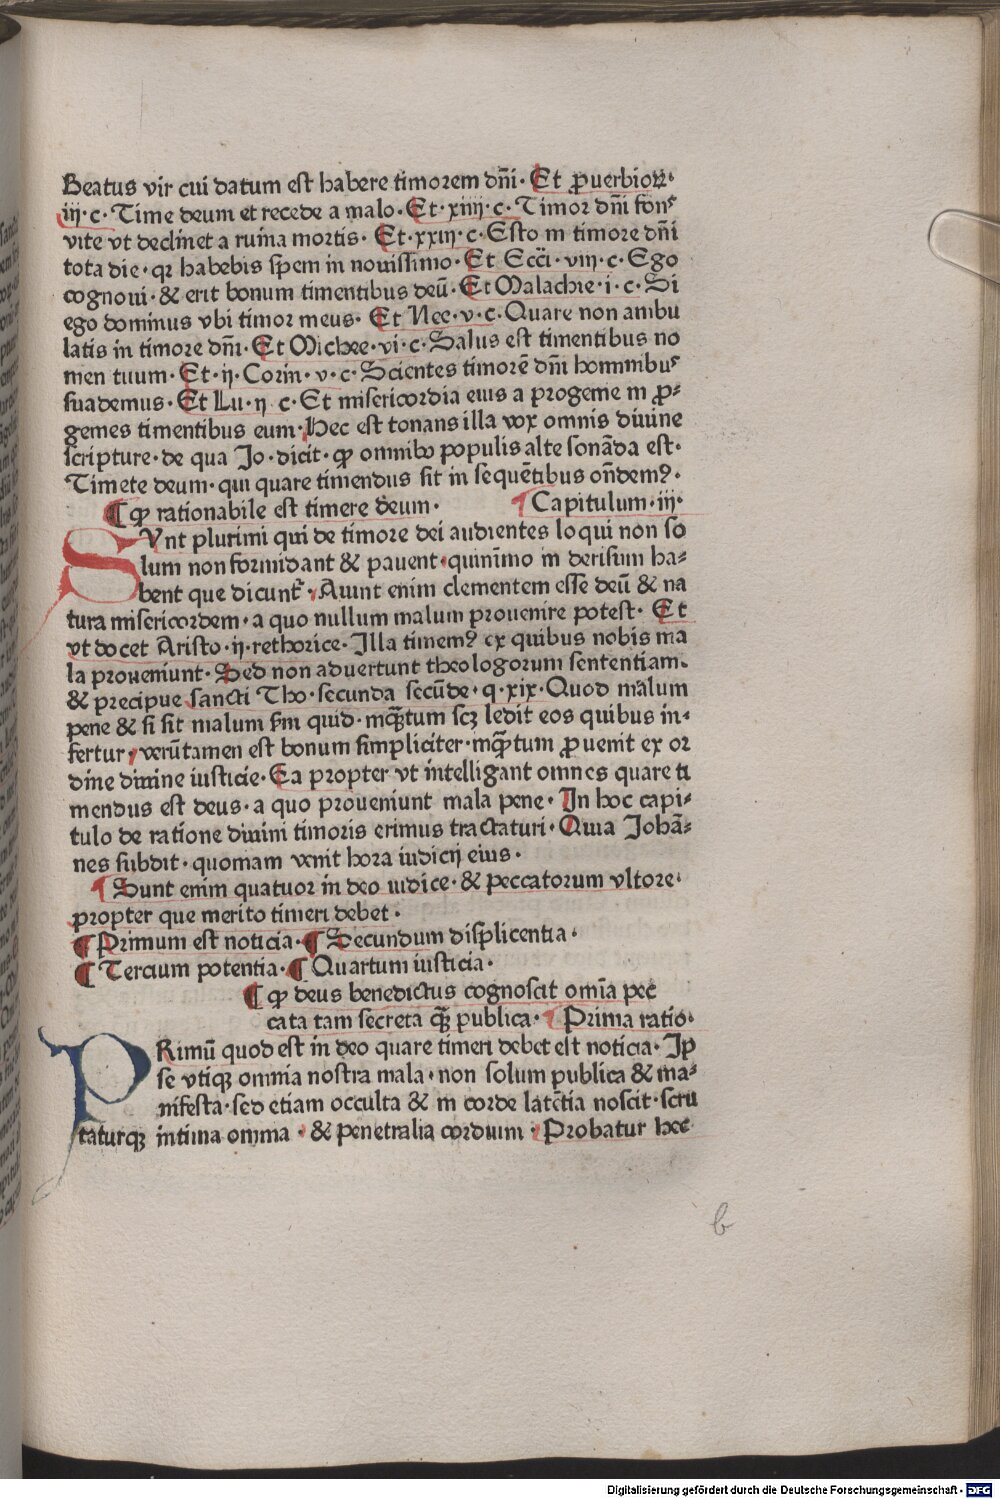 Beatus vir cui datum est habere timorem dn̄i· Et ꝓuerbioꝝ·
iij·c· Time deum et recede a malo· Et·xiiij·c· Timor dn̄i fonꝰ
vite vt declinet a ruina mortis· Et·xxiij·c· Esto in timore dn̄i
tota die·qr habebis spem in nouissimo· Et Ecc̄i·viij·c· Ego
cognoui·& erit bonum timentibus deū· Et Malachie·i·c· Si
ego dominus vbi timor meus· Et Nee·v·c· Quare non ambu
latis in timore dn̄i· Et Michee·vi·c· Salus est timentibus no
men tuum· Et·ij·Corin·v·c· Scientes timorē dn̄i hominibuꝰ
suademus· Et Lu·ij c· Et misericordia eius a progenie in ꝓ⸗
genies timentibus eum· Hec est tonans illa vox omnis diuine
scripture·de qua Jo·dicit·ꝙ omnibo populis alte sonāda est·
Timete deum·qui quare timendus sit in sequētibus on̄demꝰ·
¶ ꝙ rationabile est timere deum· ¶ Capitulum·iij·
SVnt plurimi qui de timore dei audientes loqui non so
lum non formidant & pauent·quinīmo in derisum ha⸗
bent que dicunt̄· Aiunt enim clementem esse deū & na
tura misericordem·a quo nullum malum prouenire potest· Et
vt docet Aristo·ij·rethorice· Illa timemꝰ ex quibus nobis ma
la proueniunt· Sed non aduertunt theologorum sententiam·
& precipue sancti Tho·secunda secūde·q·xix· Quod malum
pene & si sit malum s̄m quid·inqꝫ̄tum scꝫ ledit eos quibus in⸗
fertur·verūtamen est bonum simpliciter·inqꝫ̄tum ꝓuenit ex or
dine diuine iusticie· Ea propter vt intelligant omnes quare ti
mendus est deus·a quo proueniunt mala pene· In hoc capi⸗
tulo de ratione diuini timoris erimus tractaturi· Quia Johā⸗
nes subdit·quoniam venit hora iudicij eius·
¶ Sunt enim quatuor in deo iudice·& peccatorum vltore·
propter que merito timeri debet·
¶ Primum est noticia· ¶ Secundum displicentia·
¶ Tercium potentia· ¶ Quartum iusticia·
¶ ꝙ deus benedictus cognoscit omīa pec
cata tam secreta qꝫ̄ publica· ¶ Prima ratio·
PRimū quod est in deo quare timeri debet est noticia· Ip̄
se vtiqꝫ omnia nostra mala·non solum publica & ma⸗
nifesta·sed etiam occulta & in corde latētia noscit·scru
taturqꝫ intima omnia·& penetralia cordium· Probatur hec
b
Digitalisierung gefördert durch die Deutsche Forschungsgemeinschaft · DFG